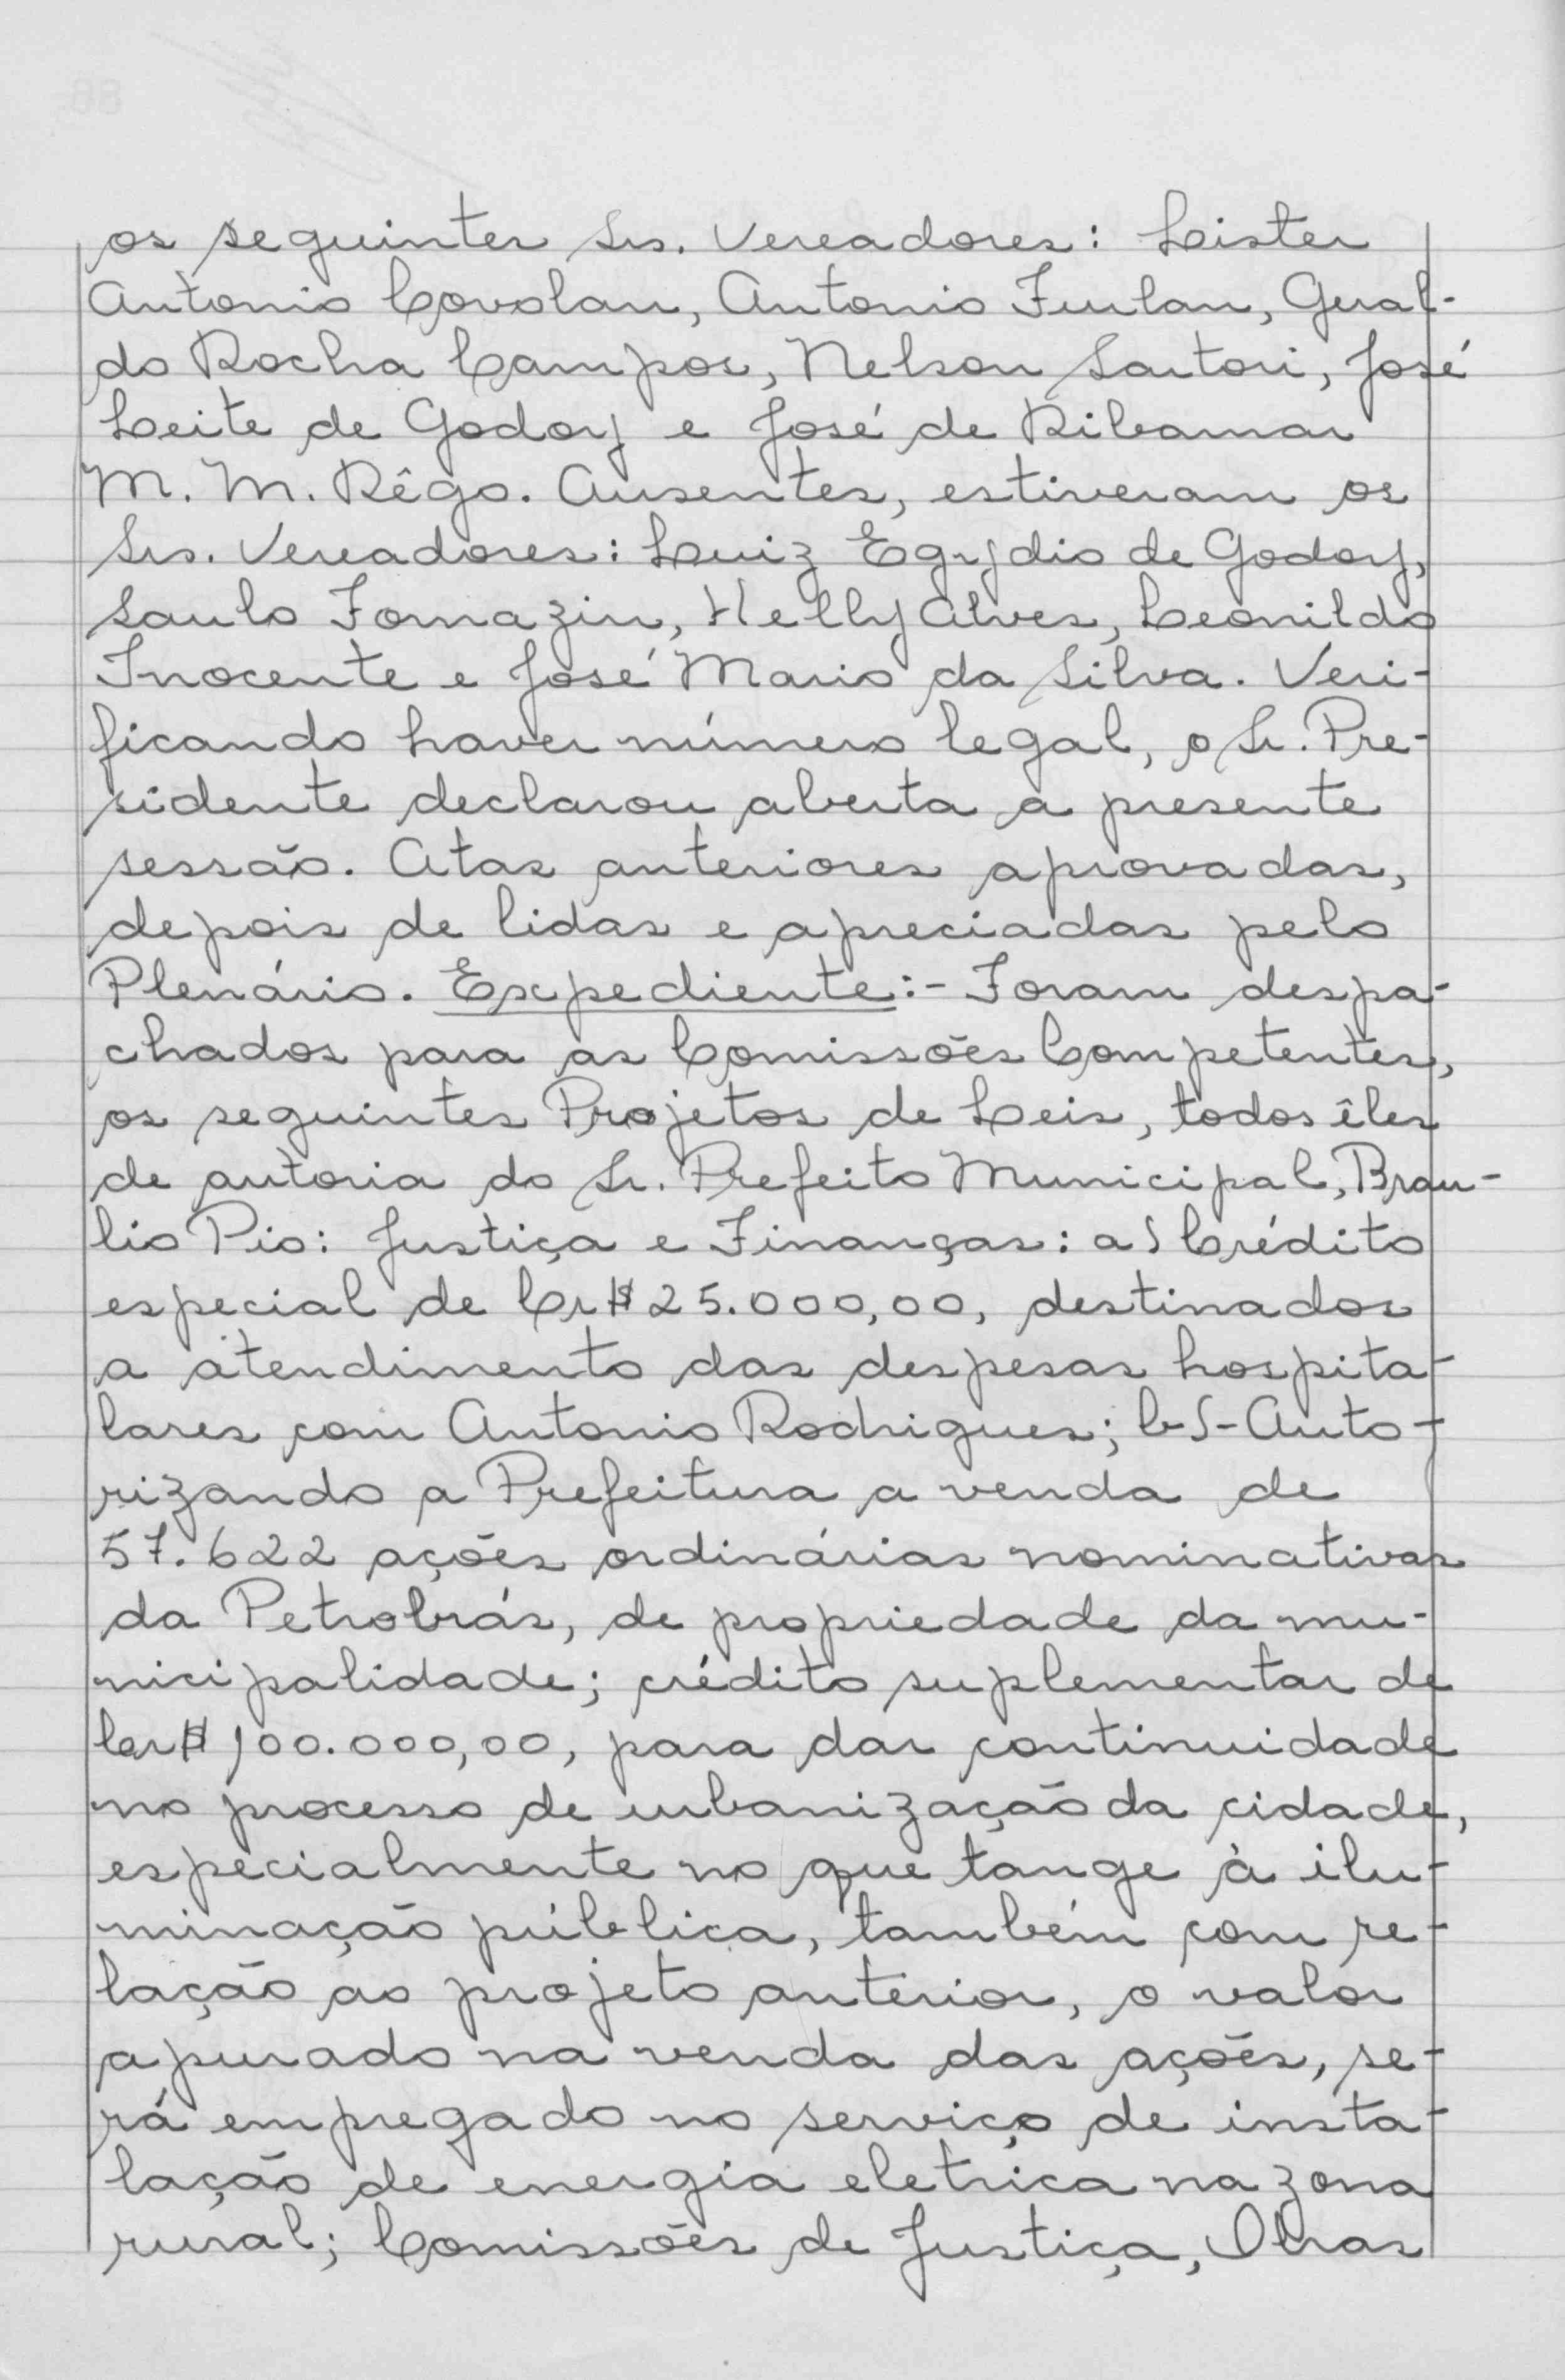 os seguintes Srs. Vereadores: Lister
Antonio Covolan, Antonio Furlan, Geral-
do Rocha Campos, Nelson Sartori, José
Leite de Godoy e José de Ribamar
M. M. Rêgo. Ausentes, estiveram os
Srs. Vereadores: Luiz Egydio de Godoy,
Saulo Fornazin, Helly Alves, Leonildo
Inocente e José Mario da Silva. Veri-
ficando haver número legal, o Sr. Pre-
sidente declarou aberta a presente
sessão. Atas anteriores aprovadas,
depois de lidas e apreciadas pelo
Plenário. Expediente:- Foram despa-
chados para as Comissões Competentes,
os seguintes Projetos de Leis, todos êles
de autoria do Sr. Prefeito Municipal, Brau-
lio Pio: Justiça e Finanças: a) Crédito
especial de Cr$ 25.000,00, destinados
a atendimento das despesas hospita-
lares com Antonio Rodrigues; b)- Auto-
rizando a Prefeitura a venda de
57.622 ações ordinárias nominativas
da Petrobrás, de propriedade da mu-
nicipalidade; crédito suplementar de
Cr$ 100.000,00, para dar continuidade
no processo de urbanização da cidade,
especialmente no que tange à ilu-
minação pública, também com re-
lação ao projeto anterior, o valor
apurado na venda das ações, se-
rá empregado no serviço de insta-
lação de energia eletrica na zona
rural; Comissões de Justiça, Obras